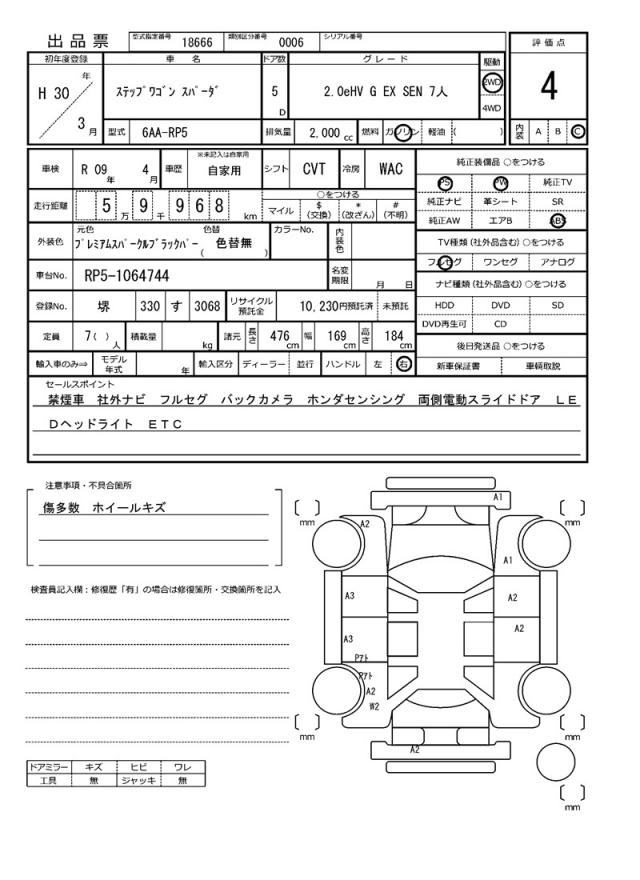 出品票 型式指定番号 18666 類別区分番号 0006 シリアル番号
初年度登録 車名 ドア数 グレード 駆動 評価点
H 30 年 3 月 ステップワゴン スパーダ 5 D 2.0eHV G EX SEN 7人 2WD 4WD 4
型式 6AA-RP5 排気量 2,000 cc 燃料 ガソリン 軽油 ( ) 内装 A B C
車検 R 09 年 4 月 車歴 ※未記入は自家用 自家用 シフト CVT 冷房 WAC 純正装備品 ○をつける
PS PW 純正TV
走行距離 5 万 9 千 9 6 8 km ○をつける
マイル $ (交換) * (改ざん) # (不明)
純正ナビ 革シート SR
純正AW エアB ABS
外装色 元色 プレミアムスパークルブラックパー 色替 ( 色替無 ) カラーNo. 内装色
TV種類 (社外品含む) ○をつける
フルセグ ワンセグ アナログ
車台No. RP5-1064744 名変期限 月 日
ナビ種類 (社外品含む) ○をつける
登録No. 堺 330 す 3068 リサイクル預託金 10,230円預託済 未預託
HDD DVD SD
DVD再生可 CD
定員 7( ) 人 積載量 kg 諸元 長さ 476 cm 幅 169 cm 高さ 184 cm
後日発送品 ○をつける
輸入車のみ⇒ モデル年式 年 輸入区分 ディーラー 並行 ハンドル 左 右
新車保証書 車輌取説
セールスポイント
禁煙車 社外ナビ フルセグ バックカメラ ホンダセンシング 両側電動スライドドア LE
Dヘッドライト ETC
注意事項・不具合箇所
傷多数 ホイールキズ
検査員記入欄：修復歴「有」の場合は修復箇所・交換箇所を記入
ドアミラー キズ ヒビ ワレ
工具 無 ジャッキ 無
A1
mm
mm
A2
A1
A3
A2
A3
A2
Pアト
Pアト
A2
W2
mm
mm
A2
mm